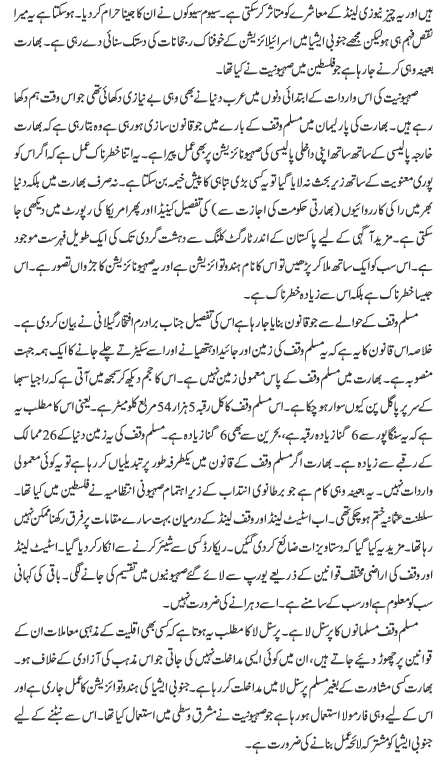 ہیں اور یہ چیز نیوزی لینڈ کے معاشرے کو متاثر کر سکتی ہے۔ سیوم سیوکوں نے ان کا جینا حرام کر دیا۔ ہو سکتا ہے یہ میرا
نقص فہم ہی ہو لیکن مجھے جنوبی ایشیا میں اسرائیلائزیشن کے خوفناک رجحانات کی دستک سنائی دے رہی ہے۔ بھارت
بعینہ وہی کرنے جا رہا ہے جو فلسطین میں صہیونیت نے کیا تھا۔
صہیونیت کی اس واردات کے ابتدائی دنوں میں عرب دنیا نے بھی وہی بے نیازی دکھائی تھی جو اس وقت ہم دکھا
رہے ہیں۔ بھارت کی پارلیمان میں مسلم وقف کے بارے میں جو قانون سازی ہو رہی ہے وہ بتا رہی ہے کہ بھارت
خارجہ پالیسی کے ساتھ ساتھ اپنی داخلی پالیسی کی صہیونائزیشن پر بھی عمل پیرا ہے۔ یہ اتنا خطرناک عمل ہے کہ اگر اس کو
پوری معنویت کے ساتھ زیر بحث نہ لایا گیا تو یہ کسی بڑی تباہی کا پیش خیمہ بن سکتا ہے۔ نہ صرف بھارت میں بلکہ دنیا
بھر میں را کی کارروائیوں (بھارتی حکومت کی اجازت سے) کی تفصیل کینیڈا اور پھر امریکا کی رپورٹ میں دیکھی جا
سکتی ہے۔ مزید آگہی کے لیے پاکستان کے اندر ٹارگٹ کلنگ سے دہشت گردی تک کی ایک طویل فہرست موجود
ہے۔ اس سب کو ایک ساتھ ملا کر پڑھیں تو اس کا نام ہندوتوائزیشن ہے اور یہ صہیونائزیشن کا جڑواں تصور ہے۔ اس
جیسا خطرناک ہے بلکہ اس سے زیادہ خطرناک ہے۔
مسلم وقف کے حوالے سے جو قانون بنایا جا رہا ہے اس کی تفصیل جناب برادرم افتخار گیلانی نے بیان کر دی ہے۔
خلاصہ اس قانون کا یہ ہے کہ یہ مسلم وقف کی زمین اور جائیداد ہتھیانے اور اسے سکیڑتے چلے جانے کا ایک ہمہ جہت
منصوبہ ہے۔ بھارت میں مسلم وقف کے پاس معمولی زمین نہیں ہے۔ اس کا حجم دیکھ کر سمجھ میں آتی ہے کہ راجیا سبھا
کے سر پر پاگل پن کیوں سوار ہو چکا ہے۔ اس مسلم وقف کا کل رقبہ 5 ہزار 54 مربع کلومیٹر ہے۔ یعنی اس کا مطلب یہ
ہے کہ یہ سنگاپور سے 6 گنا زیادہ رقبہ ہے، بحرین سے بھی 6 گنا زیادہ ہے۔ مسلم وقف کی یہ زمین دنیا کے 26 ممالک
کے رقبے سے زیادہ ہے۔ بھارت اگر مسلم وقف کے قانون میں یکطرفہ طور پر تبدیلیاں کر رہا ہے تو یہ کوئی معمولی
واردات نہیں۔ یہ بعینہ وہی کام ہے جو برطانوی انتداب کے زیر اہتمام صہیونی انتظامیہ نے فلسطین میں کیا تھا۔
سلطنت عثمانیہ ختم ہو چکی تھی۔ اب اسٹیٹ لینڈ اور وقف لینڈ کے درمیان بہت سارے مقامات پر فرق رکھنا ممکن نہیں
رہا تھا۔ مزید یہ کیا گیا کہ دستاویزات ضائع کر دی گئیں۔ ریکارڈ کسی سے شیئر کرنے سے انکار کر دیا گیا۔ اسٹیٹ لینڈ
اور وقف کی اراضی مختلف قوانین کے ذریعے یورپ سے لائے گئے صہیونیوں میں تقسیم کی جانے لگی۔ باقی کی کہانی
سب کو معلوم ہے اور سب کے سامنے ہے۔ اسے دہرانے کی ضرورت نہیں۔
مسلم وقف مسلمانوں کا پرسنل لا ہے۔ پرسنل لا کا مطلب یہ ہوتا ہے کہ کسی بھی اقلیت کے مذہبی معاملات ان کے
قوانین پر چھوڑ دیئے جاتے ہیں، ان میں کوئی ایسی مداخلت نہیں کی جاتی جو اس مذہب کی آزادی کے خلاف ہو۔
بھارت کسی مشاورت کے بغیر مسلم پرسنل لا میں مداخلت کر رہا ہے۔ جنوبی ایشیا کی ہندوتوائزیشن کا عمل جاری ہے اور
اس کے لیے وہی فارمولا استعمال ہو رہا ہے جو صہیونیت نے مشرق وسطی میں استعمال کیا تھا۔ اس سے نبٹنے کے لیے
جنوبی ایشیا کو مشترکہ لائحہ عمل بنانے کی ضرورت ہے۔